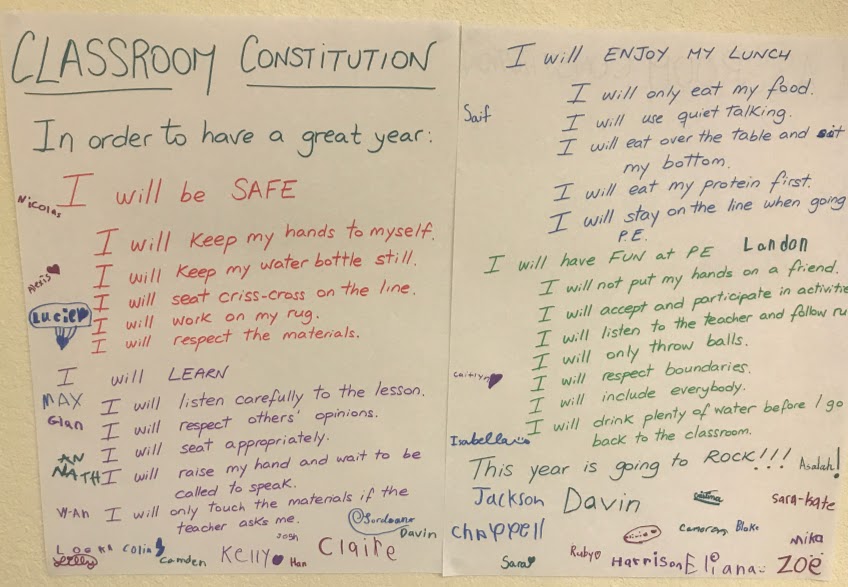 CLASSROOM CONSTITUTION
In order to have a great year:
I will be SAFE
Nicolas
I will Keep my hands to myself.
I will Keep my water bottle still.
Alexis
I will seat criss-cross on the line.
Lucie
I will work on my rug.
I will respect the materials.
I will LEARN
MAX
I will listen carefully to the lesson.
Gian
I will respect others' opinions.
I will seat appropriately.
AN
NATH
I will raise my hand and wait to be
called to speak.
I will only touch the materials if the
teacher asks me.
Josh
Davin
LOOKA
Colin
Camden
Kelly
Han
Claire
I will ENJOY MY LUNCH
I will only eat my food.
Saif
I will use quiet talking.
I will eat over the table and sit
my bottom.
I will eat my protein first.
I will stay on the line when going
P.E.
Landon
I will have FUN at PE
I will not put my hands on a friend.
I will accept and participate in activitie
I will listen to the teacher and follow ru
I will only throw balls.
I will respect boundaries.
Caitlyn
I will include everybody.
I will drink plenty of water before I go
back to the classroom.
Isabella
This year is going to ROCK!!!
Asaiah!
Jackson
Davin
Sara-Kate
Chappell
Cameron
Blake
Mika
Sara
Ruby
Harrison
Eliana
Zoë